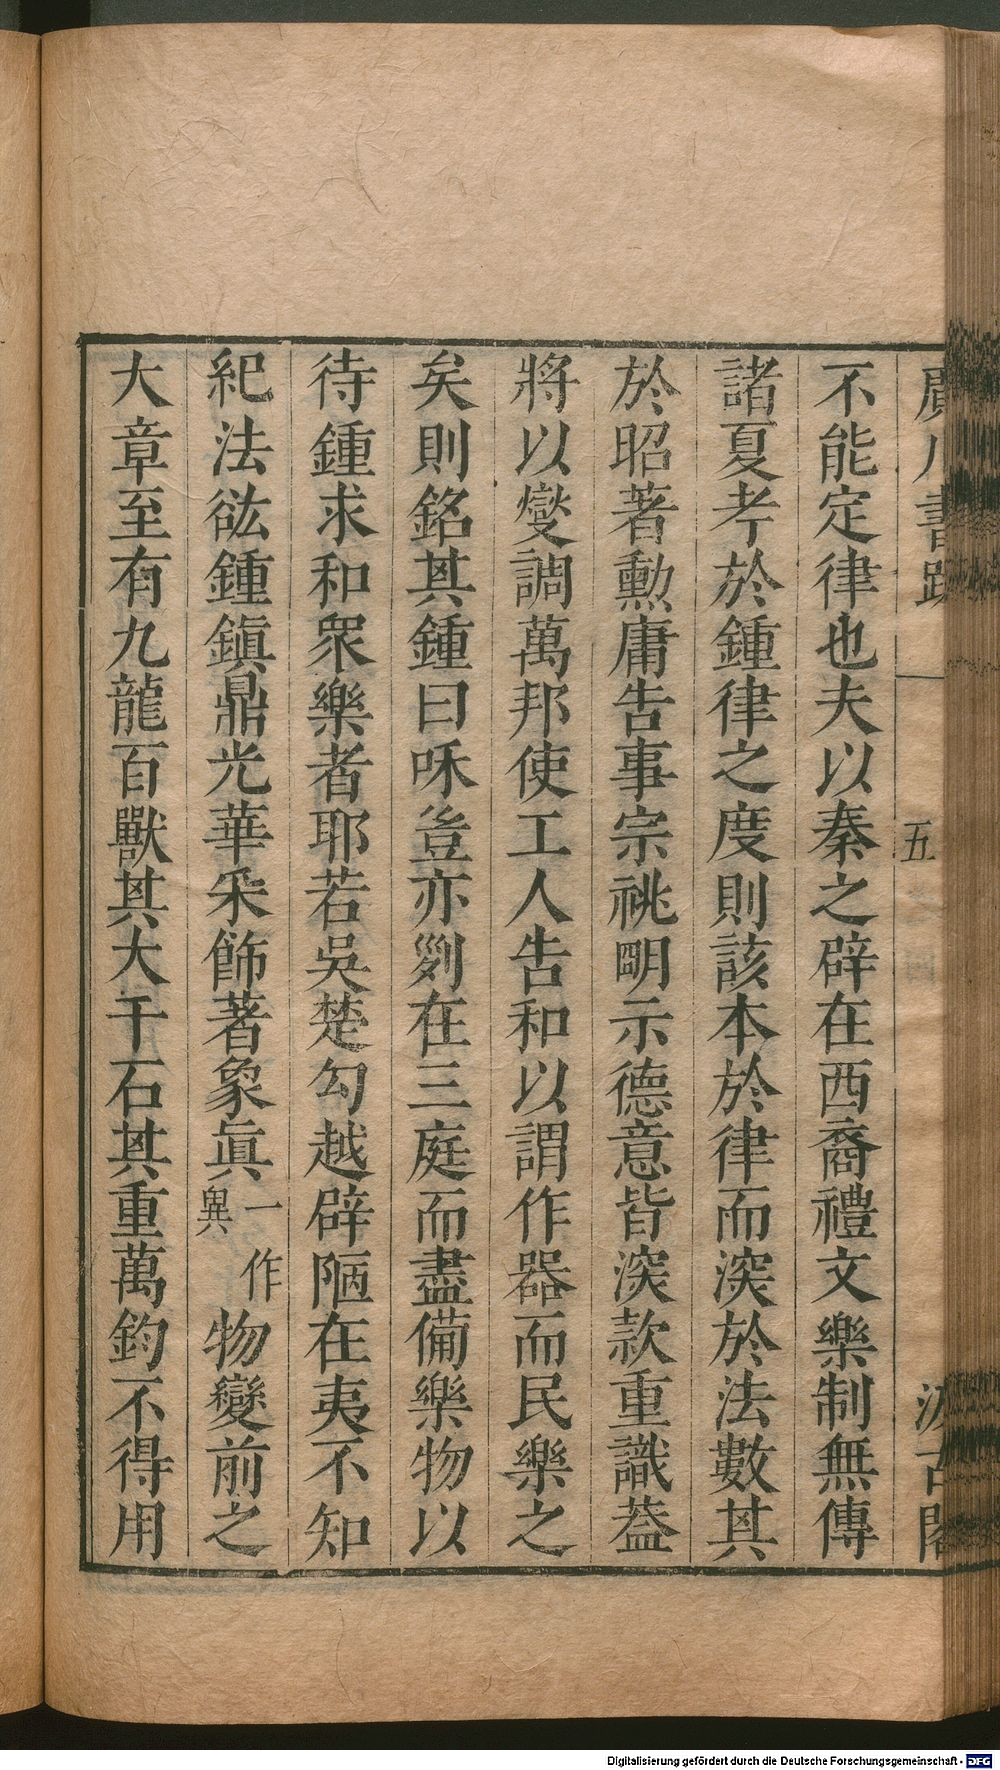 廣川書跋
五
汲古閣
不能定律也夫以秦之辟在西裔禮文樂制無傳
諸夏考於鍾律之度則該本於律而深於法數其
於昭著勲庸告事宗祧明示德意皆深款重識葢
將以燮調萬邦使工人告和以謂作器而民樂之
矣則銘其鍾曰咊豈亦剟在三庭而盡備樂物以
待鍾求和衆樂者耶若吳楚勾越辟陋在夷不知
紀法鈜鍾鎮鼎光華采飾著象眞一作異物變前之
大章至有九龍百獸其大千石其重萬鈞不得用
Digitalisierung gefördert durch die Deutsche Forschungsgemeinschaft - DFG